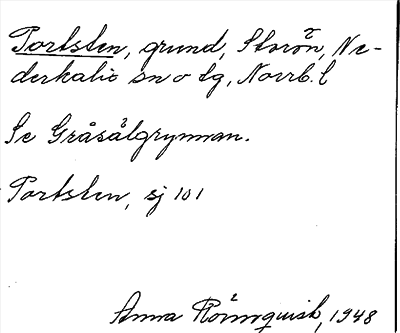 Portsten, grund, Storön, Ne-
derkalix sn o tg, Norrb. l
Se Gråsälgrynnan.
Portsten, sj 101
Anna Rönnquist, 1948